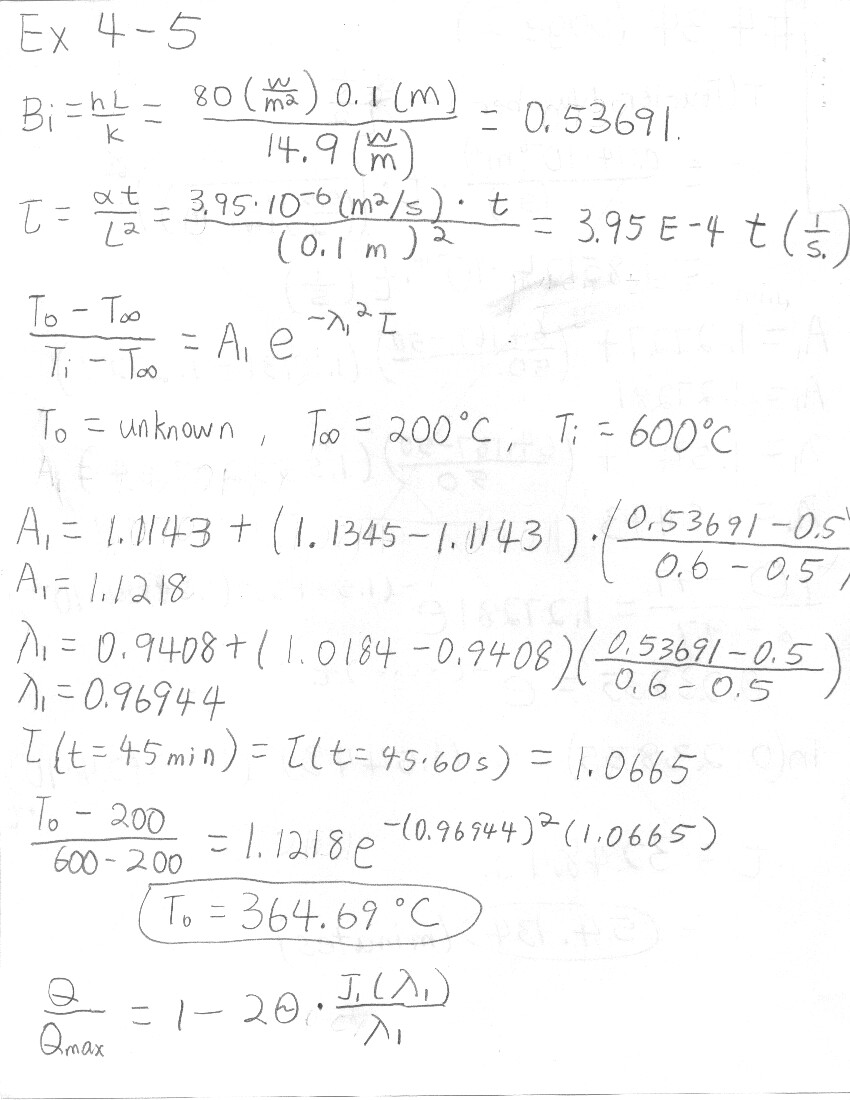 Ex 4-5
Bi = hL/k = 80 (W/m²) 0.1 (m) / 14.9 (W/m) = 0.53691.
τ = αt/L² = 3.95·10⁻⁶ (m²/s) · t / (0.1 m)² = 3.95 E-4 t (1/s.)
T₀ - T∞ / Ti - T∞ = A₁ e^(-λ₁²τ)
T₀ = unknown, T∞ = 200°C, Ti = 600°C
A₁ = 1.1143 + (1.1345 - 1.1143)·(0.53691 - 0.5 / 0.6 - 0.5)
A₁ = 1.1218
λ₁ = 0.9408 + (1.0184 - 0.9408)(0.53691 - 0.5 / 0.6 - 0.5)
λ₁ = 0.96944
τ(t = 45 min) = τ(t = 45·60s) = 1.0665
T₀ - 200 / 600 - 200 = 1.1218 e^(-(0.96944)²(1.0665))
T₀ = 364.69 °C
Q/Qmax = 1 - 2θ · J₁(λ₁)/λ₁